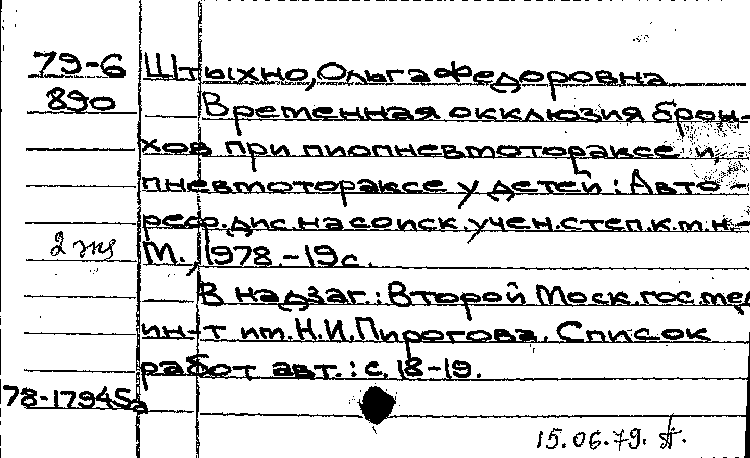 79-6 Штыхно, Ольга Федоровна
890 Временная окклюзия брон-
хов при пиопневмотораксе и
пневмотораксе у детей : Авто-
реф. дис. на соиск. учен. степ. к.м.н.-
2 экз М., 1978.-19с.
В надзаг.: Второй Моск. гос. мед
ин-т им. Н.И. Пирогова. Список
работ авт.: с. 18-19.
78-17945а
15.06.79.